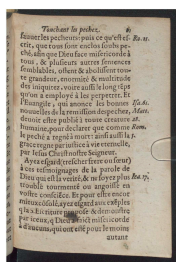 Touchant les pechez. 61
sauuer les pecheurs: puis ce qu'est es-
crit, que tous sont enclos soubs pe-
ché, afin que Dieu face misericorde à
tous, & plusieurs autres sentences
semblables, ostent & abolissent tou-
te grandeur, enormité & multitude
des iniquitez, voire aussi le long tẽps
qu'on a employé à les perpetrer. Et
l'Euangile, qui anonce les bonnes
nouuelles de la remission des pechez,
doit estre publié à toute creature
humaine, pour declarer que comme
le peché a regné à mort: ainsi aussi la
grace regne par iustice à vie eternelle,
par Iesus Christ nostre Seigneur.
Ayez esgard (tres cher frere ou sœur)
à ces tesmoignages de la parole de
Dieu qui est la verité, & ne soyez plus
troublé tourmenté ou angoissé en
vostre conscience. Et pour estre encor
mieux cõsolé, ayez esgard aux exẽples
par iceux, Dieu a faict misericorde
à d'aucuns, qui ont esté pour le moins
autant
Ro. 11.
Isa. 61.
Marc.
Rom.
Iea. 17.